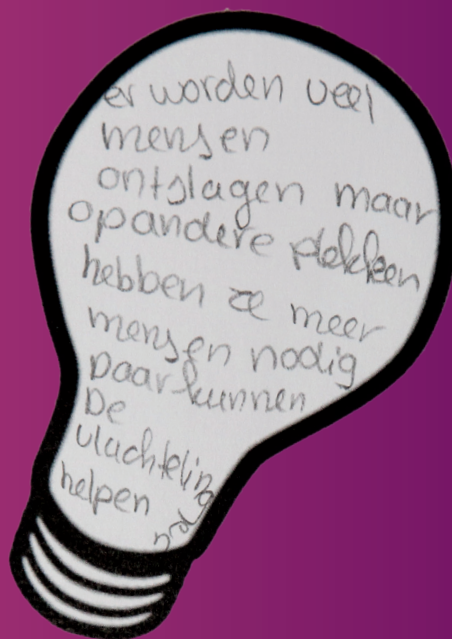 er worden veel
mensen
ontslagen maar
opandere plekken
hebben ze meer
mensen nodig
Daar kunnen
De
vluchtelingen
helpen